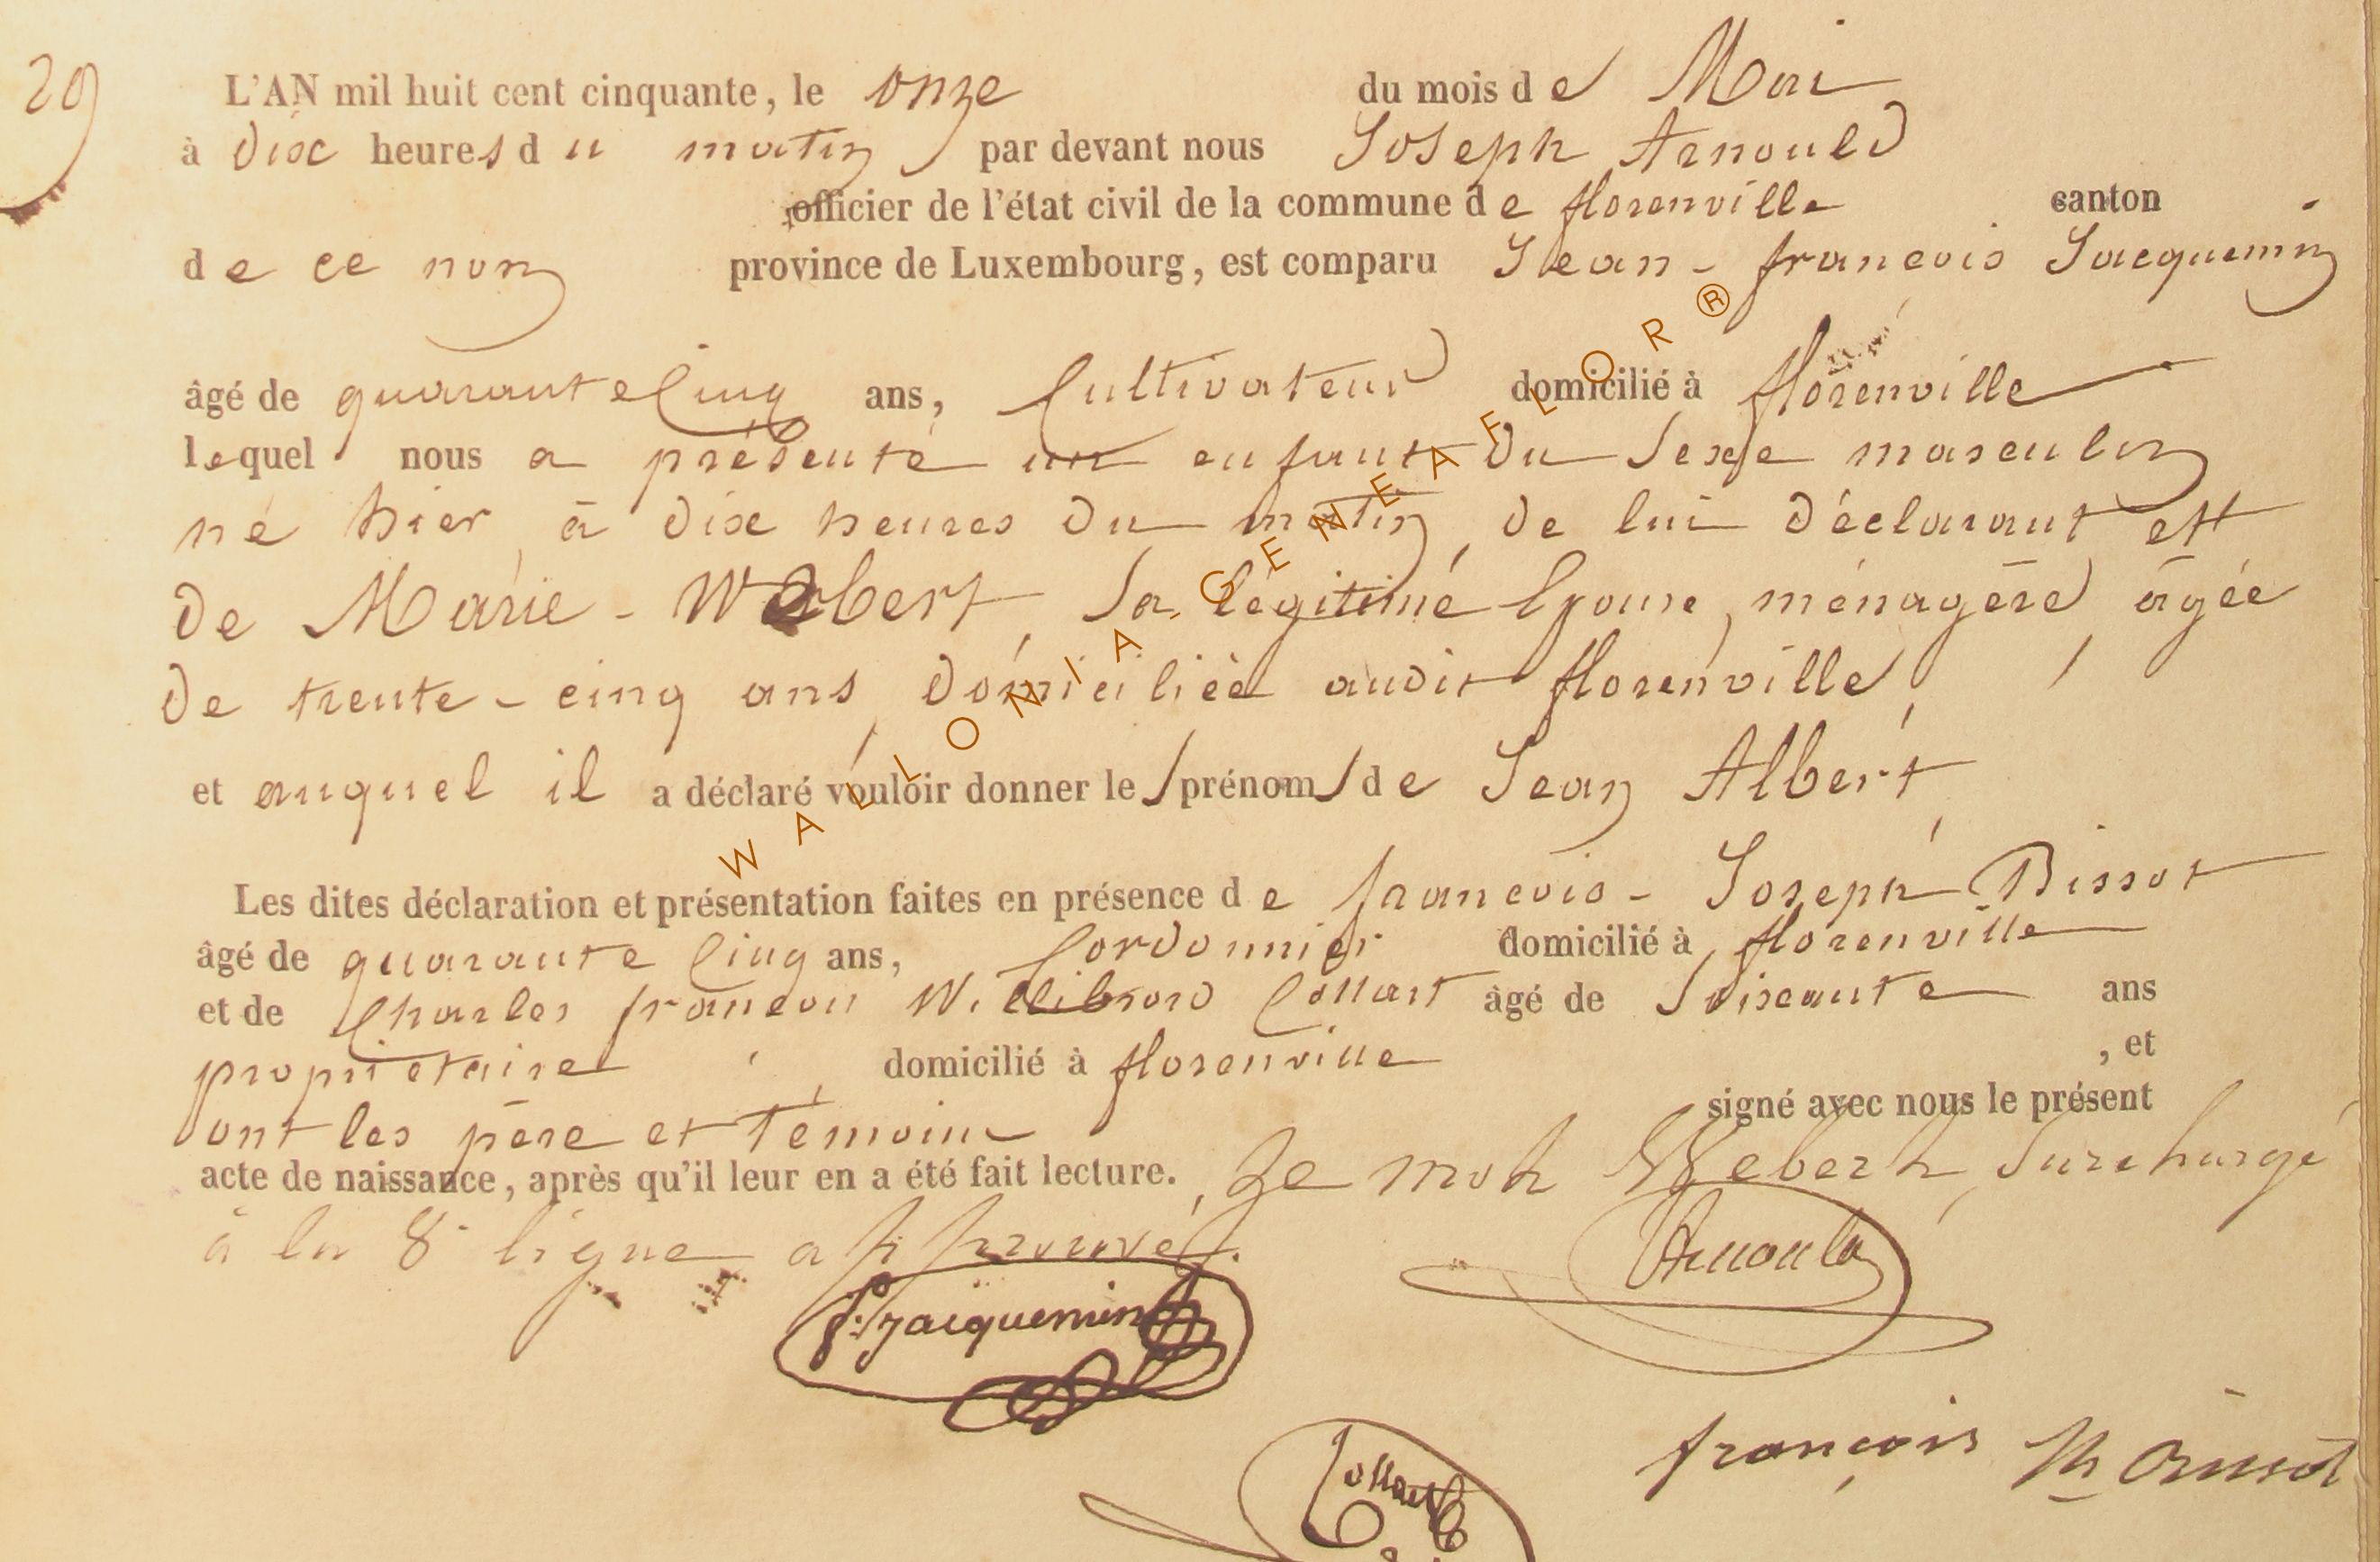 29
L'AN mil huit cent cinquante, le onze du mois de Mai
à dix heures du matin par devant nous Joseph Arnould
officier de l'état civil de la commune de florenville canton
de ce nom province de Luxembourg, est comparu Jean-francois Jacquemin
âgé de quarante Cinq ans, Cultivateur domicilié à florenville
lequel nous a présenté un enfant du Sexe masculin
né hier, à dix heures du matin, de lui déclarant et
de Marie-Webert, Sa légitime Epouse, ménagère, agée
de trente-cinq ans, domiciliée audit florenville,
et auquel il a déclaré vouloir donner les prénoms de Jean Albert,
Les dites déclaration et présentation faites en présence de francois-Joseph Bissot
âgé de quarante Cinq ans, Cordonnier domicilié à florenville
et de Charles francois Willibrord Collart âgé de Soixante ans
propriétaire, domicilié à florenville , et
ont les père et témoins signé avec nous le présent
acte de naissance, après qu'il leur en a été fait lecture. Le mot Webert, Surchargé
à la 8e ligne approuvé.
Arnould
f: jacquemin
françois
Collart
WALLONIA - GENEAFLOR ®